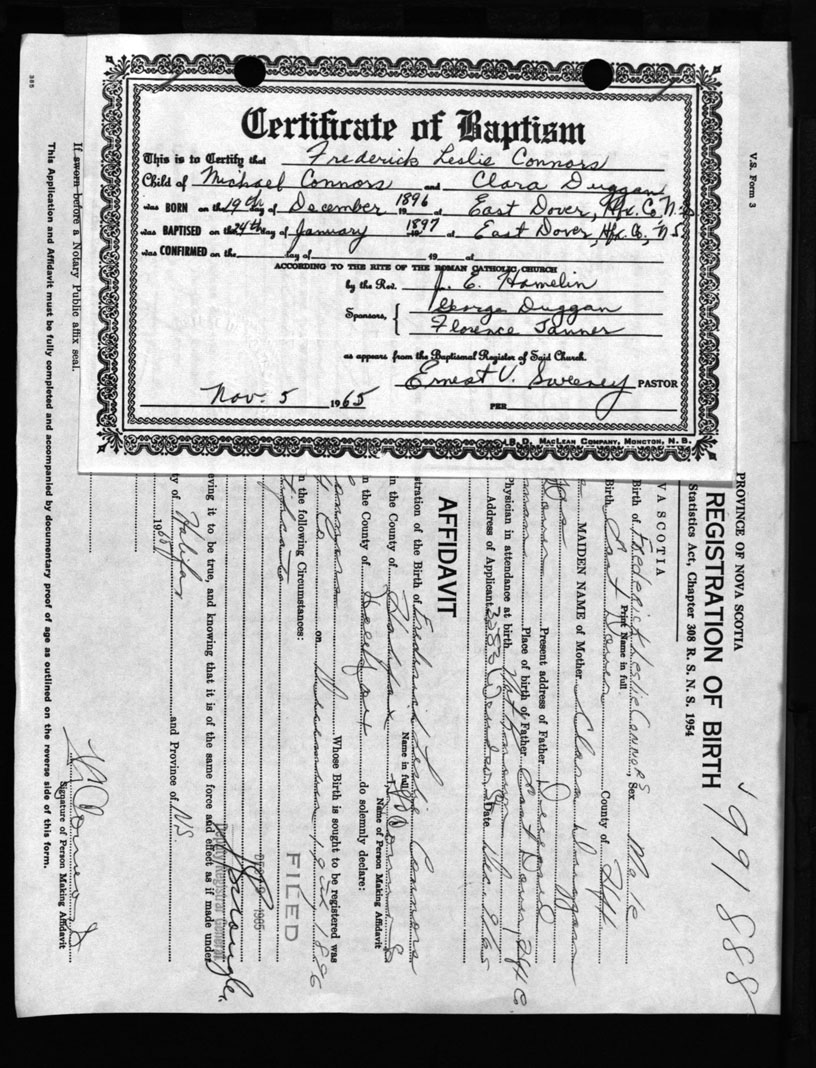 Certificate of Baptism
This is to Certify that Frederick Leslie Connors
Child of Michael Connors and Clara Duggan
was BORN on the 19th day of December 1896 at East Dover, Hfx. Co. N.S.
was BAPTISED on the 24th day of January 1897 at East Dover, Hfx. Co., N.S.
was CONFIRMED on the day of 19 at
ACCORDING TO THE RITE OF THE ROMAN CATHOLIC CHURCH
by the Rev. J. E. Hamelin
Sponsors, George Duggan
Florence Tanner
as appears from the Baptismal Register of Said Church.
Ernest V. Sweeney PASTOR
Nov. 5 1965 PER
B. D. MacLean Company, Moncton, N. B.
V.S. Form 3
PROVINCE OF NOVA SCOTIA
REGISTRATION OF BIRTH
991888
Statistics Act, Chapter 308 R. S. N. S. 1954
VA SCOTIA
Birth of Frederick Leslie Connors, Sex Male
Print Name in full
Birth East Dover County of Hfx
MAIDEN NAME of Mother Clara Duggan
Present address of Father Deceased
Place of birth of Father East Dover, Hfx Co.
Physician in attendance at birth
Address of Applicant Date
AFFIDAVIT
stration of the Birth of Frederick Leslie Connors
Name in full
n the County of Halifax
Name of Person Making Affidavit
n the County of do solemnly declare:
Whose Birth is sought to be registered was
on December 19th 1896
n the following Circumstances:
FILED
1965
Deputy Registrar General
aving it to be true, and knowing that it is of the same force and effect as if made under
ty of Halifax and Province of N.S.
196
Signature of Person Making Affidavit
If sworn before a Notary Public affix seal.
This Application and Affidavit must be fully completed and accompanied by documentary proof of age as outlined on the reverse side of this form.